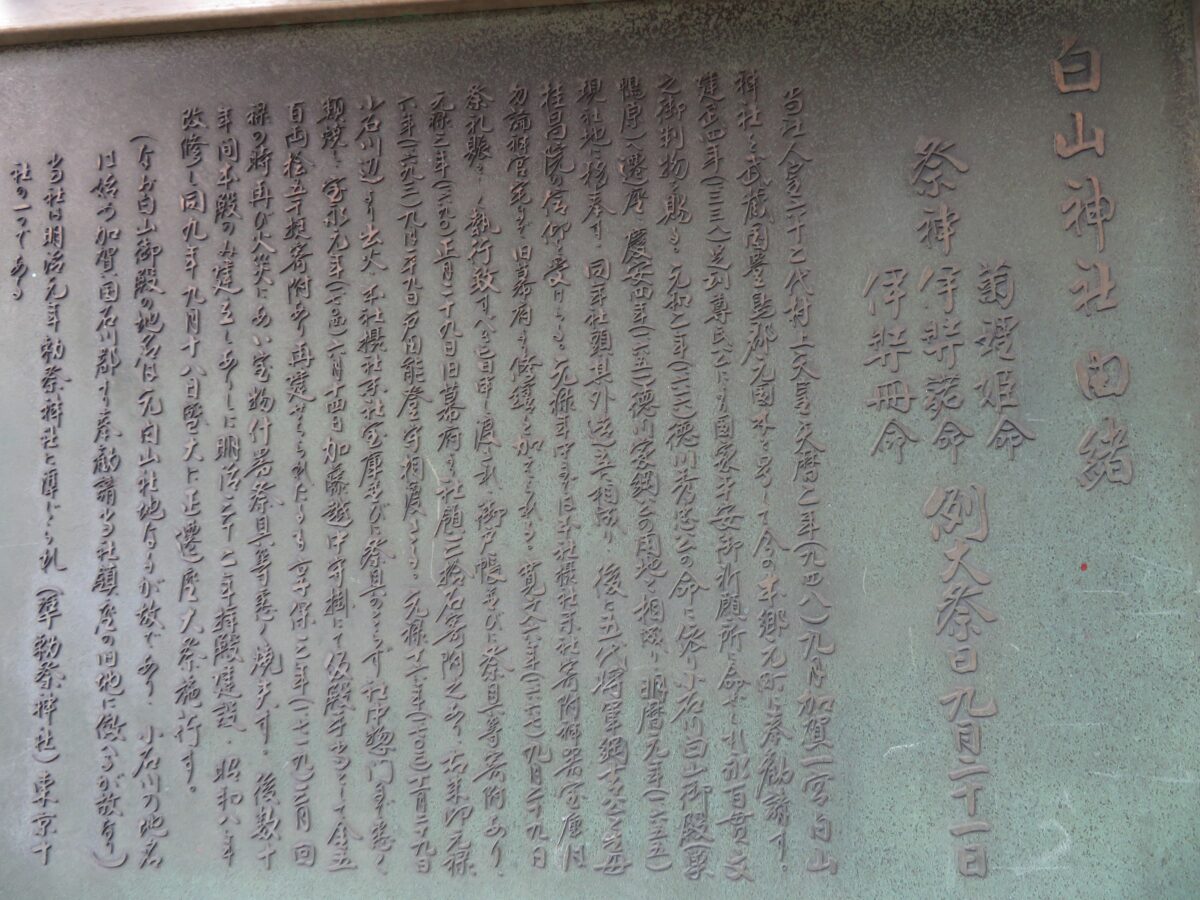 白山神社由緒
祭神
菊理姫命
伊弉諾命
伊弉冊命
例大祭日九月二十一日
当社人皇六十二代村上天皇之天暦二年(九四八)九月加賀一宮白山
神社を武蔵国豊島郡元国木と号して今の本郷元町に奉勧請す。
建武四年(一三三八)足利尊氏公により国家平安御祈願所に命ぜられ永百貫文
之御判物を賜る。元和二年(一六一六)徳川秀忠公の命に依り小石川白山御殿
へ遷座。慶安四年(一六五一)徳川家綱公の用地と相成り明暦元年(一六五五)
現社地に移奉す。同年社頭其外造立相成り、後に五代将軍綱吉公之母
桂昌院の信仰を受けらる。元禄年中までは本社摂社末社寄附神器宝庫は
勿論神官宅まで旧幕府より修繕を加えられる。九月二十九日
祭礼賑々しく執行致すべき旨申し渡され、御戸帳並びに祭具等寄附あり、
元禄三年(一六九〇)正月二十九日旧幕府より社領三拾石寄附之あり、元禄
六年(一六九三)九月二十九日戸田能登守相渡さる。元禄十六年(一七〇三)十一月二十九日
小石川辺より出火、本社摂社末社宝庫並びに祭具のこらず社中惣門まで悉く
類焼し宝永元年(一七〇四)六月十四日加藤越中守掛にて仮殿手当として金五
百両桧五千挺寄附あり再建せられたるも享保三年(一七一九)三月回
禄の時再び火災にあい宝物什器祭具等悉く焼失す。後数十
年間本殿のみ建立しありしに明治二十二年拝殿建設、昭和八年
改修し同九年九月十八日盛大に正遷座大祭施行す。
(なお白山御殿の地名は元白山社地なるが故であり、小石川の地名
は始め加賀国石川郡より奉勧請当社鎮座の旧地に倣へるが故なり)
当社は明治元年勅祭神社に準じられ(準勅祭神社)東京十
社の一つである